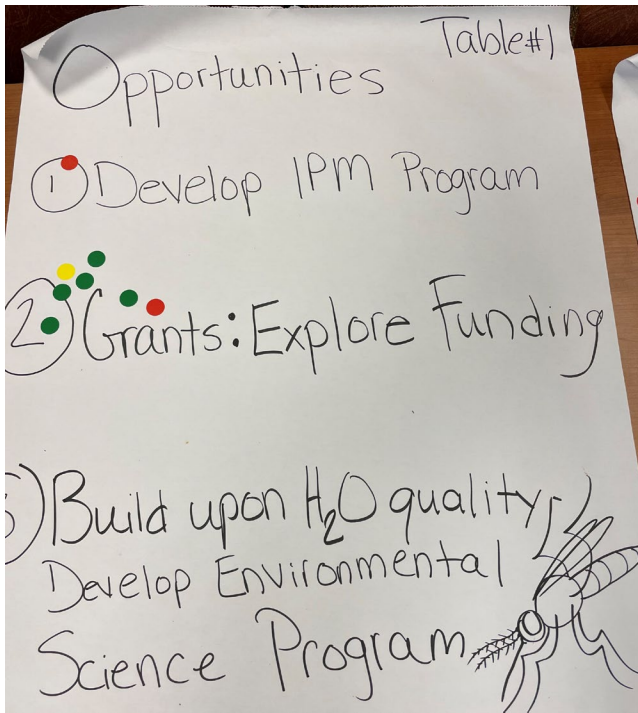 Table#1
Opportunities
1 Develop IPM Program
2 Grants: Explore Funding
Build upon H₂O quality,
Develop Environmental
Science Program